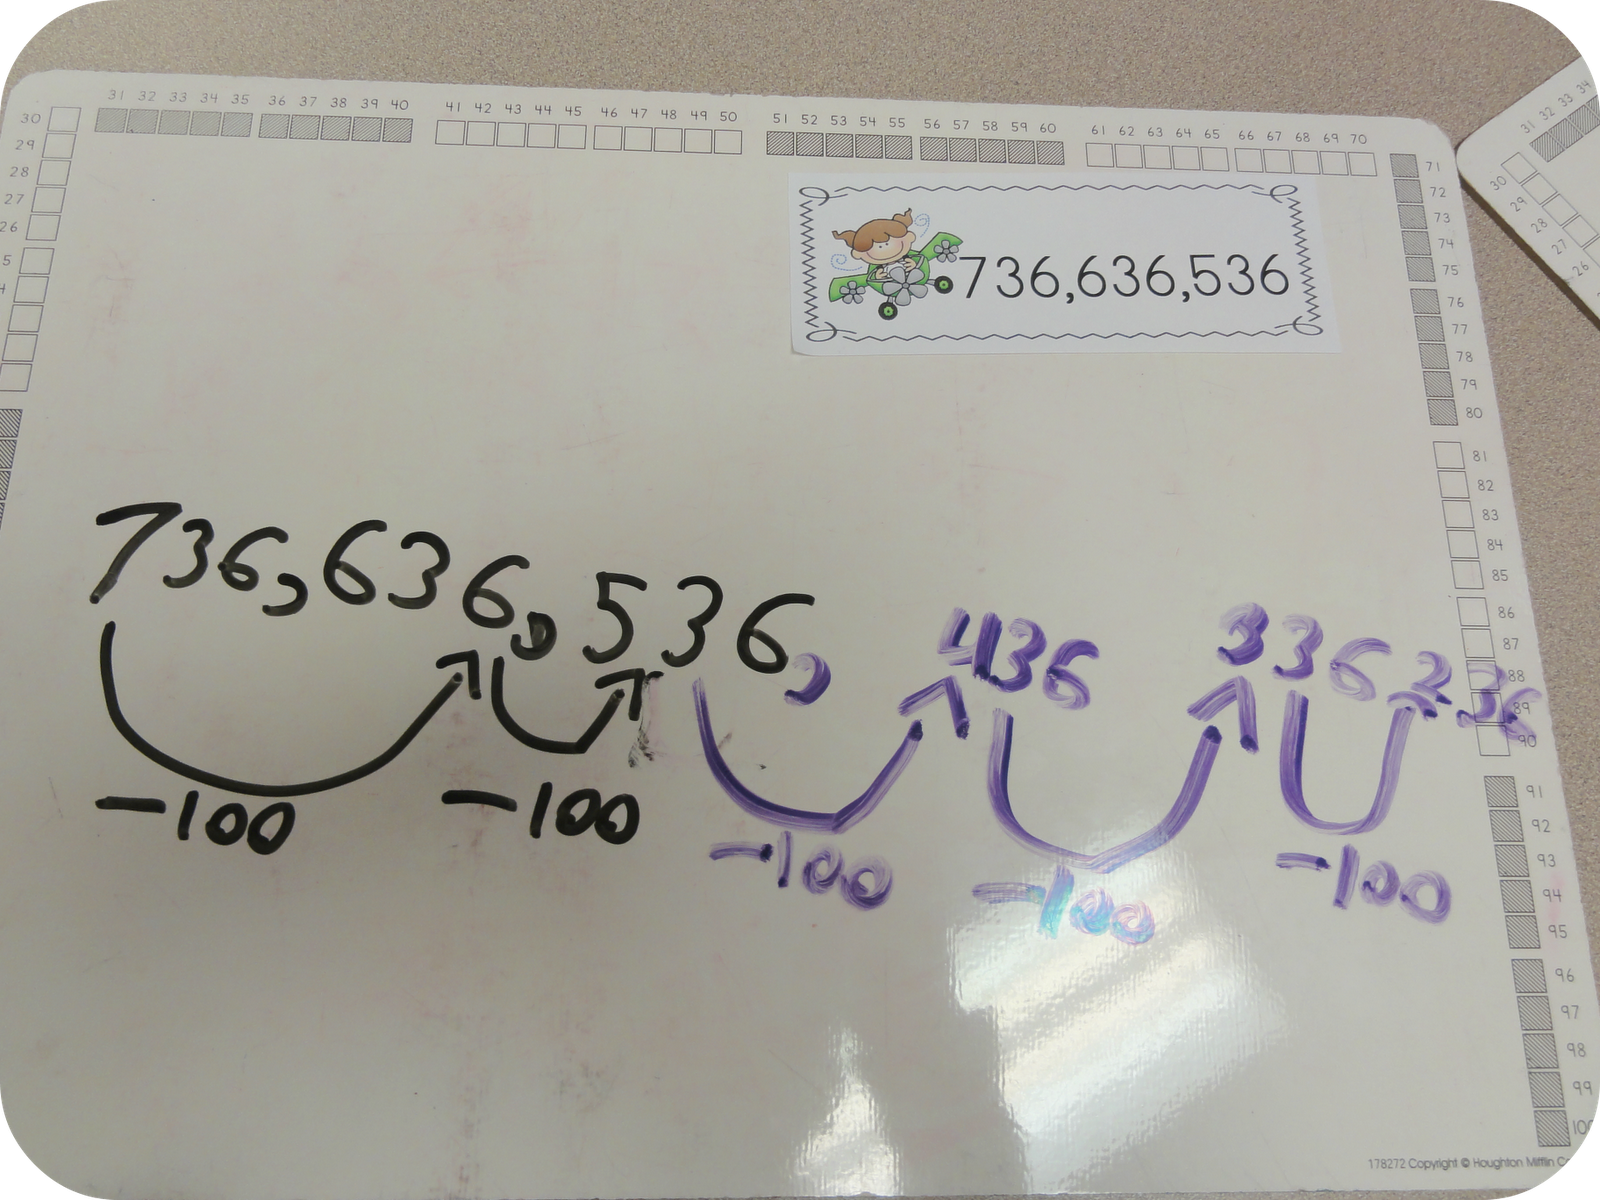 31 32 33 34 35 36 37 38 39 40 41 42 43 44 45 46 47 48 49 50 51 52 53 54 55 56 57 58 59 60 61 62 63 64 65 66 67 68 69 70
30
29
28
27
26
71
72
73
74
75
76
77
78
79
80
81
82
83
84
85
86
87
88
89
90
91
92
93
94
95
96
97
98
99
736,636,536
736,636,536, 436 336 236
-100 -100 -100 -100 -100
31 32 33 34
30
29
28
27
26
178272 Copyright © Houghton Mifflin